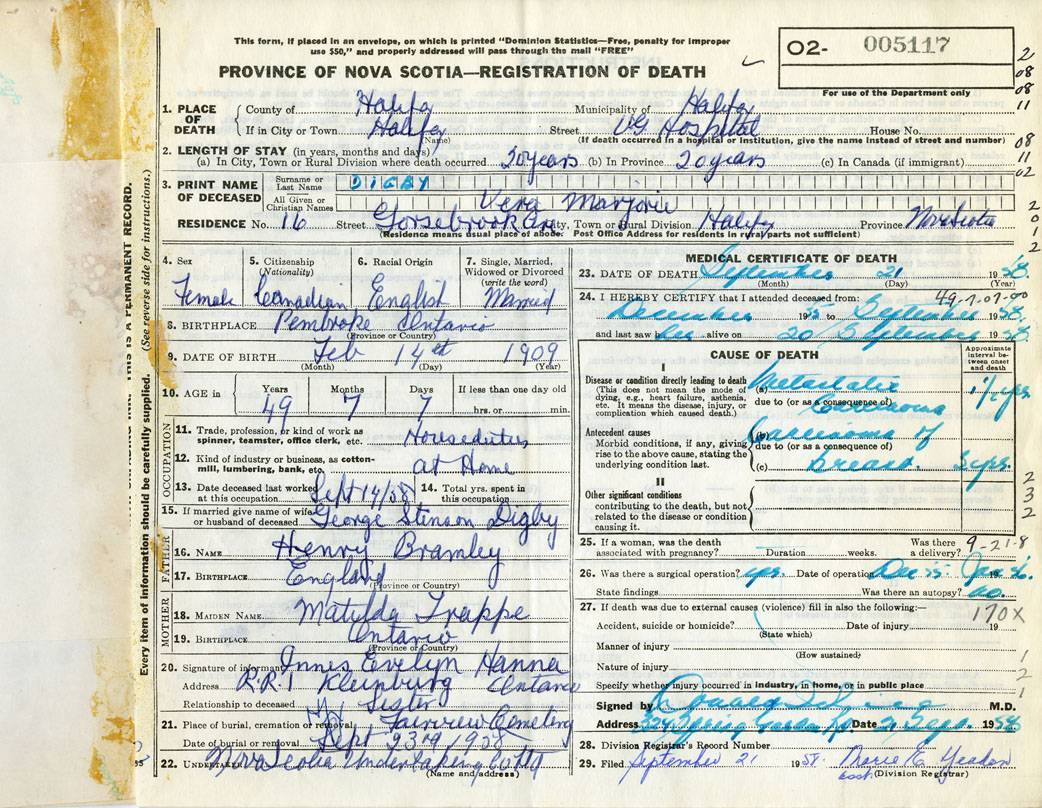 This form, if placed in an envelope, on which is printed "Dominion Statistics—Free, penalty for improper
use $50," and properly addressed will pass through the mail "FREE"
O2- 005117
PROVINCE OF NOVA SCOTIA—REGISTRATION OF DEATH
For use of the Department only
1. PLACE OF DEATH County of Halifax Municipality of Halifax
If in City or Town Halifax Street VG Hospital House No.
(Name) (If death occurred in a hospital or institution, give the name instead of street and number)
2. LENGTH OF STAY (in years, months and days)
(a) In City, Town or Rural Division where death occurred 20 years (b) In Province 20 years (c) In Canada (if immigrant)
3. PRINT NAME OF DECEASED Surname or Last Name DIGBY
All Given or Christian Names Vera Marjorie
RESIDENCE No. 16 Street Gorsebrook Ave City, Town or Rural Division Halifax Province Nova Scotia
(Residence means usual place of abode. Post Office Address for residents in rural parts not sufficient)
4. Sex Female
5. Citizenship (Nationality) Canadian
6. Racial Origin English
7. Single, Married, Widowed or Divorced (write the word) Married
8. BIRTHPLACE Pembroke Ontario
(Province or Country)
9. DATE OF BIRTH Feb 14th 1909
(Month) (Day) (Year)
10. AGE in Years 49 Months 7 Days 7 If less than one day old hrs. or min.
OCCUPATION
11. Trade, profession, or kind of work as spinner, teamster, office clerk, etc. Houseduties
12. Kind of industry or business, as cotton-mill, lumbering, bank, etc. at Home
13. Date deceased last worked at this occupation Sept 14/58 14. Total yrs. spent in this occupation
15. If married give name of wife or husband of deceased George Stinson Digby
FATHER
16. NAME Henry Bramley
17. BIRTHPLACE England
(Province or Country)
MOTHER
18. MAIDEN NAME Matilda Trappe
19. BIRTHPLACE Ontario
(Province or Country)
20. Signature of informant Innes Evelyn Hanna
Address R.R.1 Kleinburg Ontario
Relationship to deceased Sister
21. Place of burial, cremation or removal Fairview Cemetery
Date of burial or removal Sept 23rd 1958
22. UNDERTAKER Nova Scotia Undertaking Co Ltd
(Name and address)
MEDICAL CERTIFICATE OF DEATH
23. DATE OF DEATH September 21 1958
(Month) (Day) (Year)
24. I HEREBY CERTIFY that I attended deceased from: 49-7-07-00
December 19 to September 1958
and last saw her alive on 20 September 1958
CAUSE OF DEATH
Approximate interval between onset and death
I
Disease or condition directly leading to death
(This does not mean the mode of dying, e.g., heart failure, asthenia, etc. It means the disease, injury, or complication which caused death.)
(a) Metastatic
due to (or as a consequence of)
Carcinoma
1 1/2 yrs
Antecedent causes
Morbid conditions, if any, giving rise to the above cause, stating the underlying condition last.
(b) Carcinoma of
due to (or as a consequence of)
(c) breast. 3 yrs.
II
Other significant conditions
contributing to the death, but not related to the disease or condition causing it.
25. If a woman, was the death associated with pregnancy? Duration weeks. Was there a delivery? 9-21-8
26. Was there a surgical operation? yes Date of operation Dec 55 19
State findings Was there an autopsy? no.
27. If death was due to external causes (violence) fill in also the following:—
170X
Accident, suicide or homicide? Date of injury 19
(State which)
Manner of injury
(How sustained)
Nature of injury
Specify whether injury occurred in industry, in home, or in public place
Signed by M.D.
Address Spring Garden Rd Date 21 Sept. 1958
28. Division Registrar's Record Number
29. Filed September 21 1958. Marie E.
asst. (Division Registrar)
THIS IS A PERMANENT RECORD.
Every item of information should be carefully supplied. (See reverse side for instructions.)
2
08
08
11
08
11
02
2
0
1
2
2
3
2
1
2
1